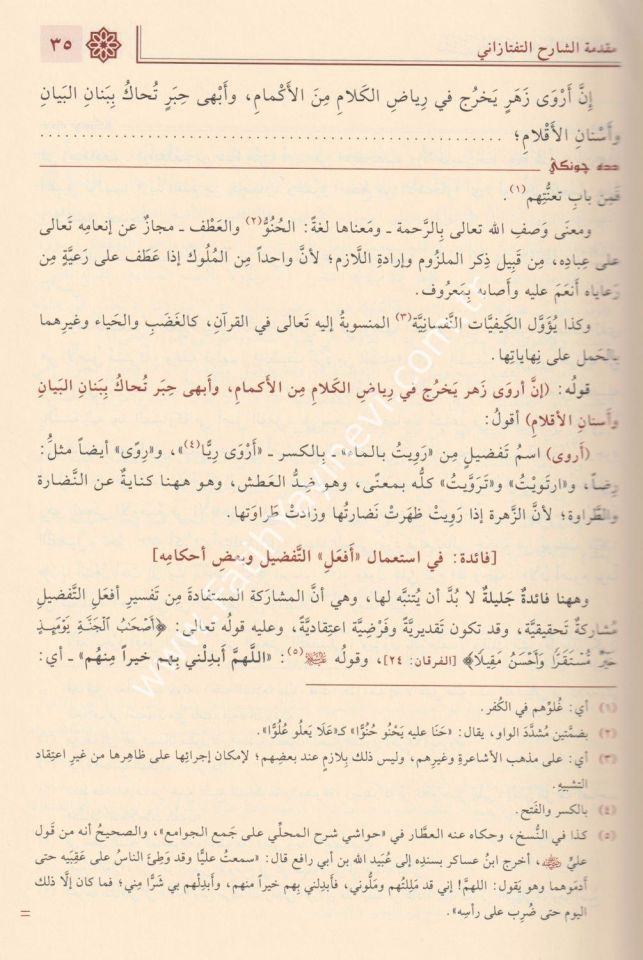 مقدمة الشارح التفتازاني
٣٥
إِنَّ أَرْوَى زَهَرٍ يَخرُج في رِياضِ الكَلامِ مِنَ الأَكْمامِ، وأَبْهى حِبَرٍ تُحاكُ بِبَنانِ البَيانِ
وأَسْنانِ الأَقْلامِ؛
دده جونكي
فَمِن بابِ تعنُّتِهم(١).
ومعنَى وَصفِ الله تعالى بِالرَّحمة ـ ومَعناها لغةً: الحُنُوُّ(٢) والعَطْف ـ مجازٌ عن إنعامِه تَعالى
على عِبادِه، مِن قَبِيل ذِكر الملزُوم وإرادةِ اللَّازم؛ لأنَّ واحداً مِن المُلوك إذا عَطَف على رَعيَّةٍ مِن
رَعاياه أَنعَمَ عليه وأصابه بِمَعروف.
وكذا يُؤَوَّل الكَيفيَّات النَّفسانيَّة(٣) المنسوبةُ إليه تعالى في القرآنِ، كالغَضَبِ والحَياء وغيرِهما
بِالحَمل على نِهاياتِها.
قولُه: (إنَّ أروَى زَهر يَخرُج في رياضِ الكَلامِ مِن الأكمامِ، وأبهى حِبَر تُحاكُ بِبَنانِ البَيانِ
وأسنانِ الأقلامِ) أقولُ:
(أَروى) اسمُ تَفضيلٍ مِن «رَوِيتُ بالماء» ـ بِالكسر ـ «أَرْوَى رِيًّا(٤)»، و«رِوًى» أيضاً مثلُ:
رِضاً، و«ارتَويْتُ» و«تَروَّيتُ» كلُّه بمعنًى، وهو ضِدُّ العَطش، وهو ههنا كنايةٌ عن النَّضارة
والطَّراوة؛ لأنَّ الزَّهرة إذا رَوِيتْ ظَهرَتْ نَضارتُها وزادَتْ طَراوَتُها.
[فائدة: في استعمال «أفعَلِ» التَّفضيل وبعضِ أحكامِه]
وههنا فائدةٌ جَليلةٌ لا بُدَّ أن يُتنبَّه لها، وهي أنَّ المشارَكة المستفادةَ مِن تَفسيرِ أفعَلِ التَّفضيلِ
مُشارَكةٌ تَحقيقيَّة، وقد تكون تَقديريَّةً وفَرْضيَّة اعتِقاديَّةً، وعليه قولُه تعالى: ﴿أَصْحَٰبُ ٱلْجَنَّةِ يَوْمَئِذٍ
خَيْرٌ مُّسْتَقَرًّا وَأَحْسَنُ مَقِيلًا﴾ [الفرقان: ٢٤]، وقولُه ﷺ(٥): «اللَّهمَّ أَبدِلْني بِهم خَيراً مِنهُم» ـ أي:
(١) أي: غُلُوِّهم في الكُفر.
(٢) بضمَّتين مُشدَّدَ الواو، يقال: «حَنَا عليه يَحْنُو حُنُوًّا» كـ«عَلَا يَعلُو عُلُوًّا».
(٣) أي: على مذهب الأشاعرةِ وغيرِهم، وليس ذلك بِلازمٍ عند بعضِهم؛ لإمكان إجرائِها على ظاهِرها من غيرِ اعتِقاد
التشبيهِ.
(٤) بالكسر والفَتح.
(٥) كذا في النُّسخ، وحكاه عنه العطَّار في «حواشي شرح المحلِّي على جَمع الجوامع»، والصحيحُ أنه من قول
عليٍّ ﷺ، أخرج ابنُ عساكر بسنده إلى عُبَيد الله بن أبي رافع قال: «سمعتُ عليًّا وقد وَطِئَ الناسُ على عَقِبَيه حتى
أَدمَوهما وهو يَقول: اللهمَّ! إني قد مَلِلتُهم ومَلُّوني، فأَبدِلني بِهم خَيراً منهم، وأَبدِلْهم بي شَرًّا مِني؛ فما كان إلَّا ذلك
اليوم حتى ضُرِب على رأسِه».
www.fatihyayinevi.com.tr